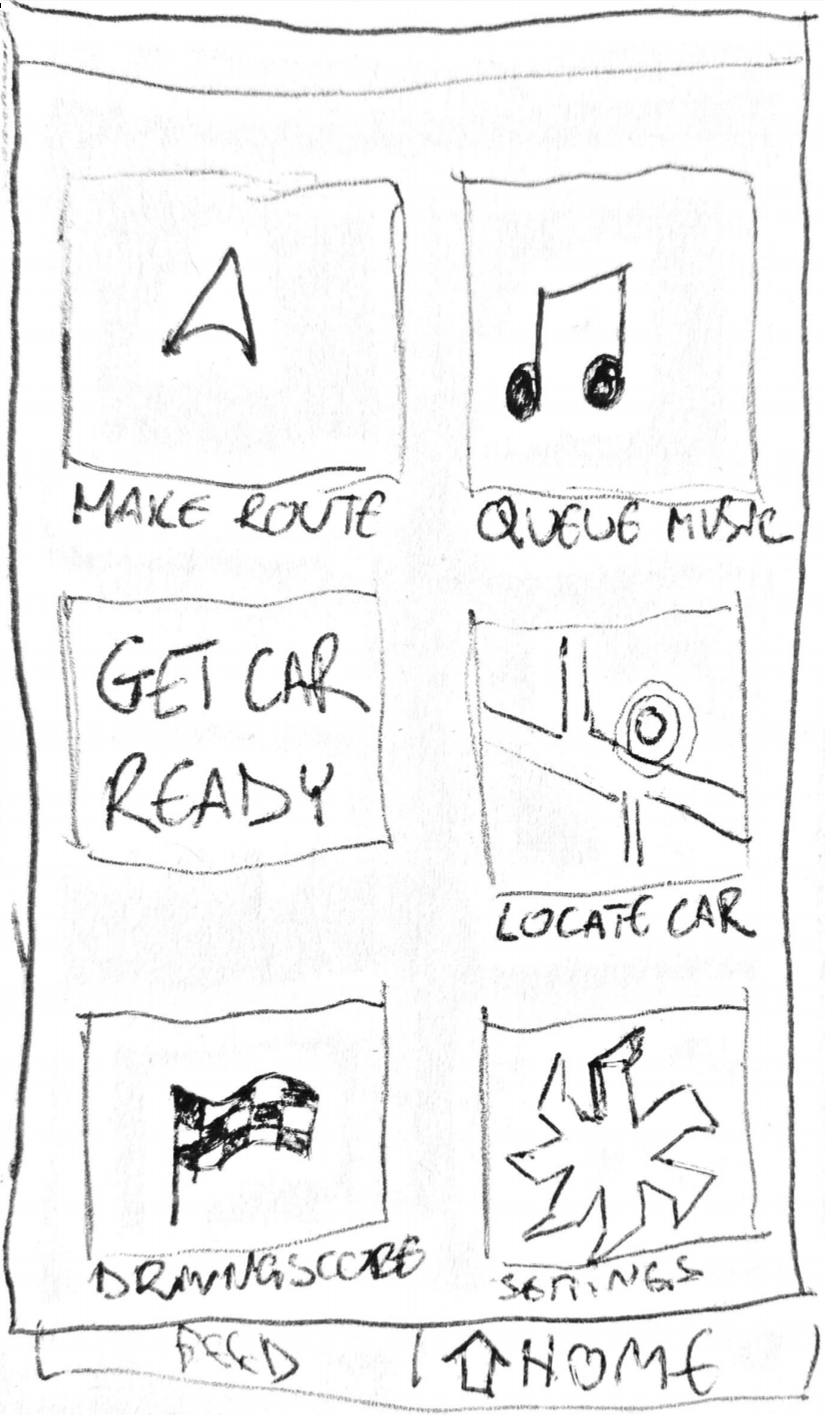 MAKE ROUTE
QUEUE MUSIC
GET CAR
READY
LOCATE CAR
DRIVINGSCORE
SETTINGS
FEED
HOME